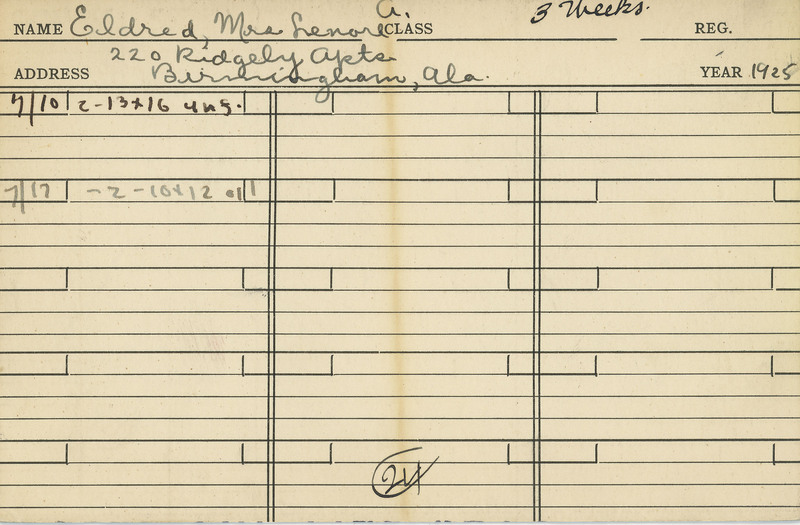 A.
NAME Eldred, Mrs Lenore CLASS 3 Weeks. REG.
220 Ridgely Apts
ADDRESS Birmingham, Ala. YEAR 1925
7/10 2-13x16 ung.
7/17 -2-10x12 oil
24